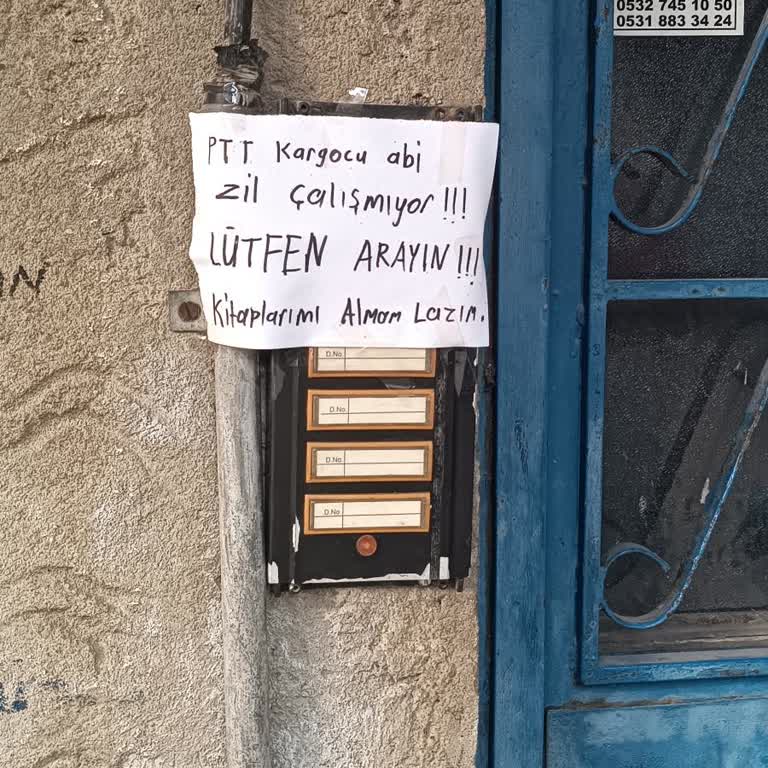 0532 745 10 50
0531 883 34 24
PTT Kargocu abi
zil çalışmıyor!!!
LÜTFEN ARAYIN!!!
Kitaplarımı Almam Lazım.
D.No
D.No
D.No
D.No